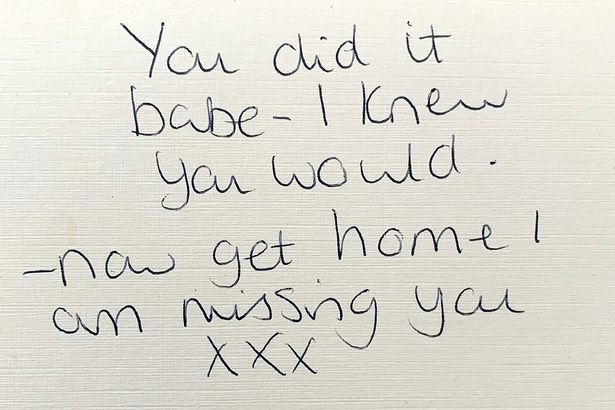 You did it
babe - I knew
you would.
- now get home I
am missing you
xxx